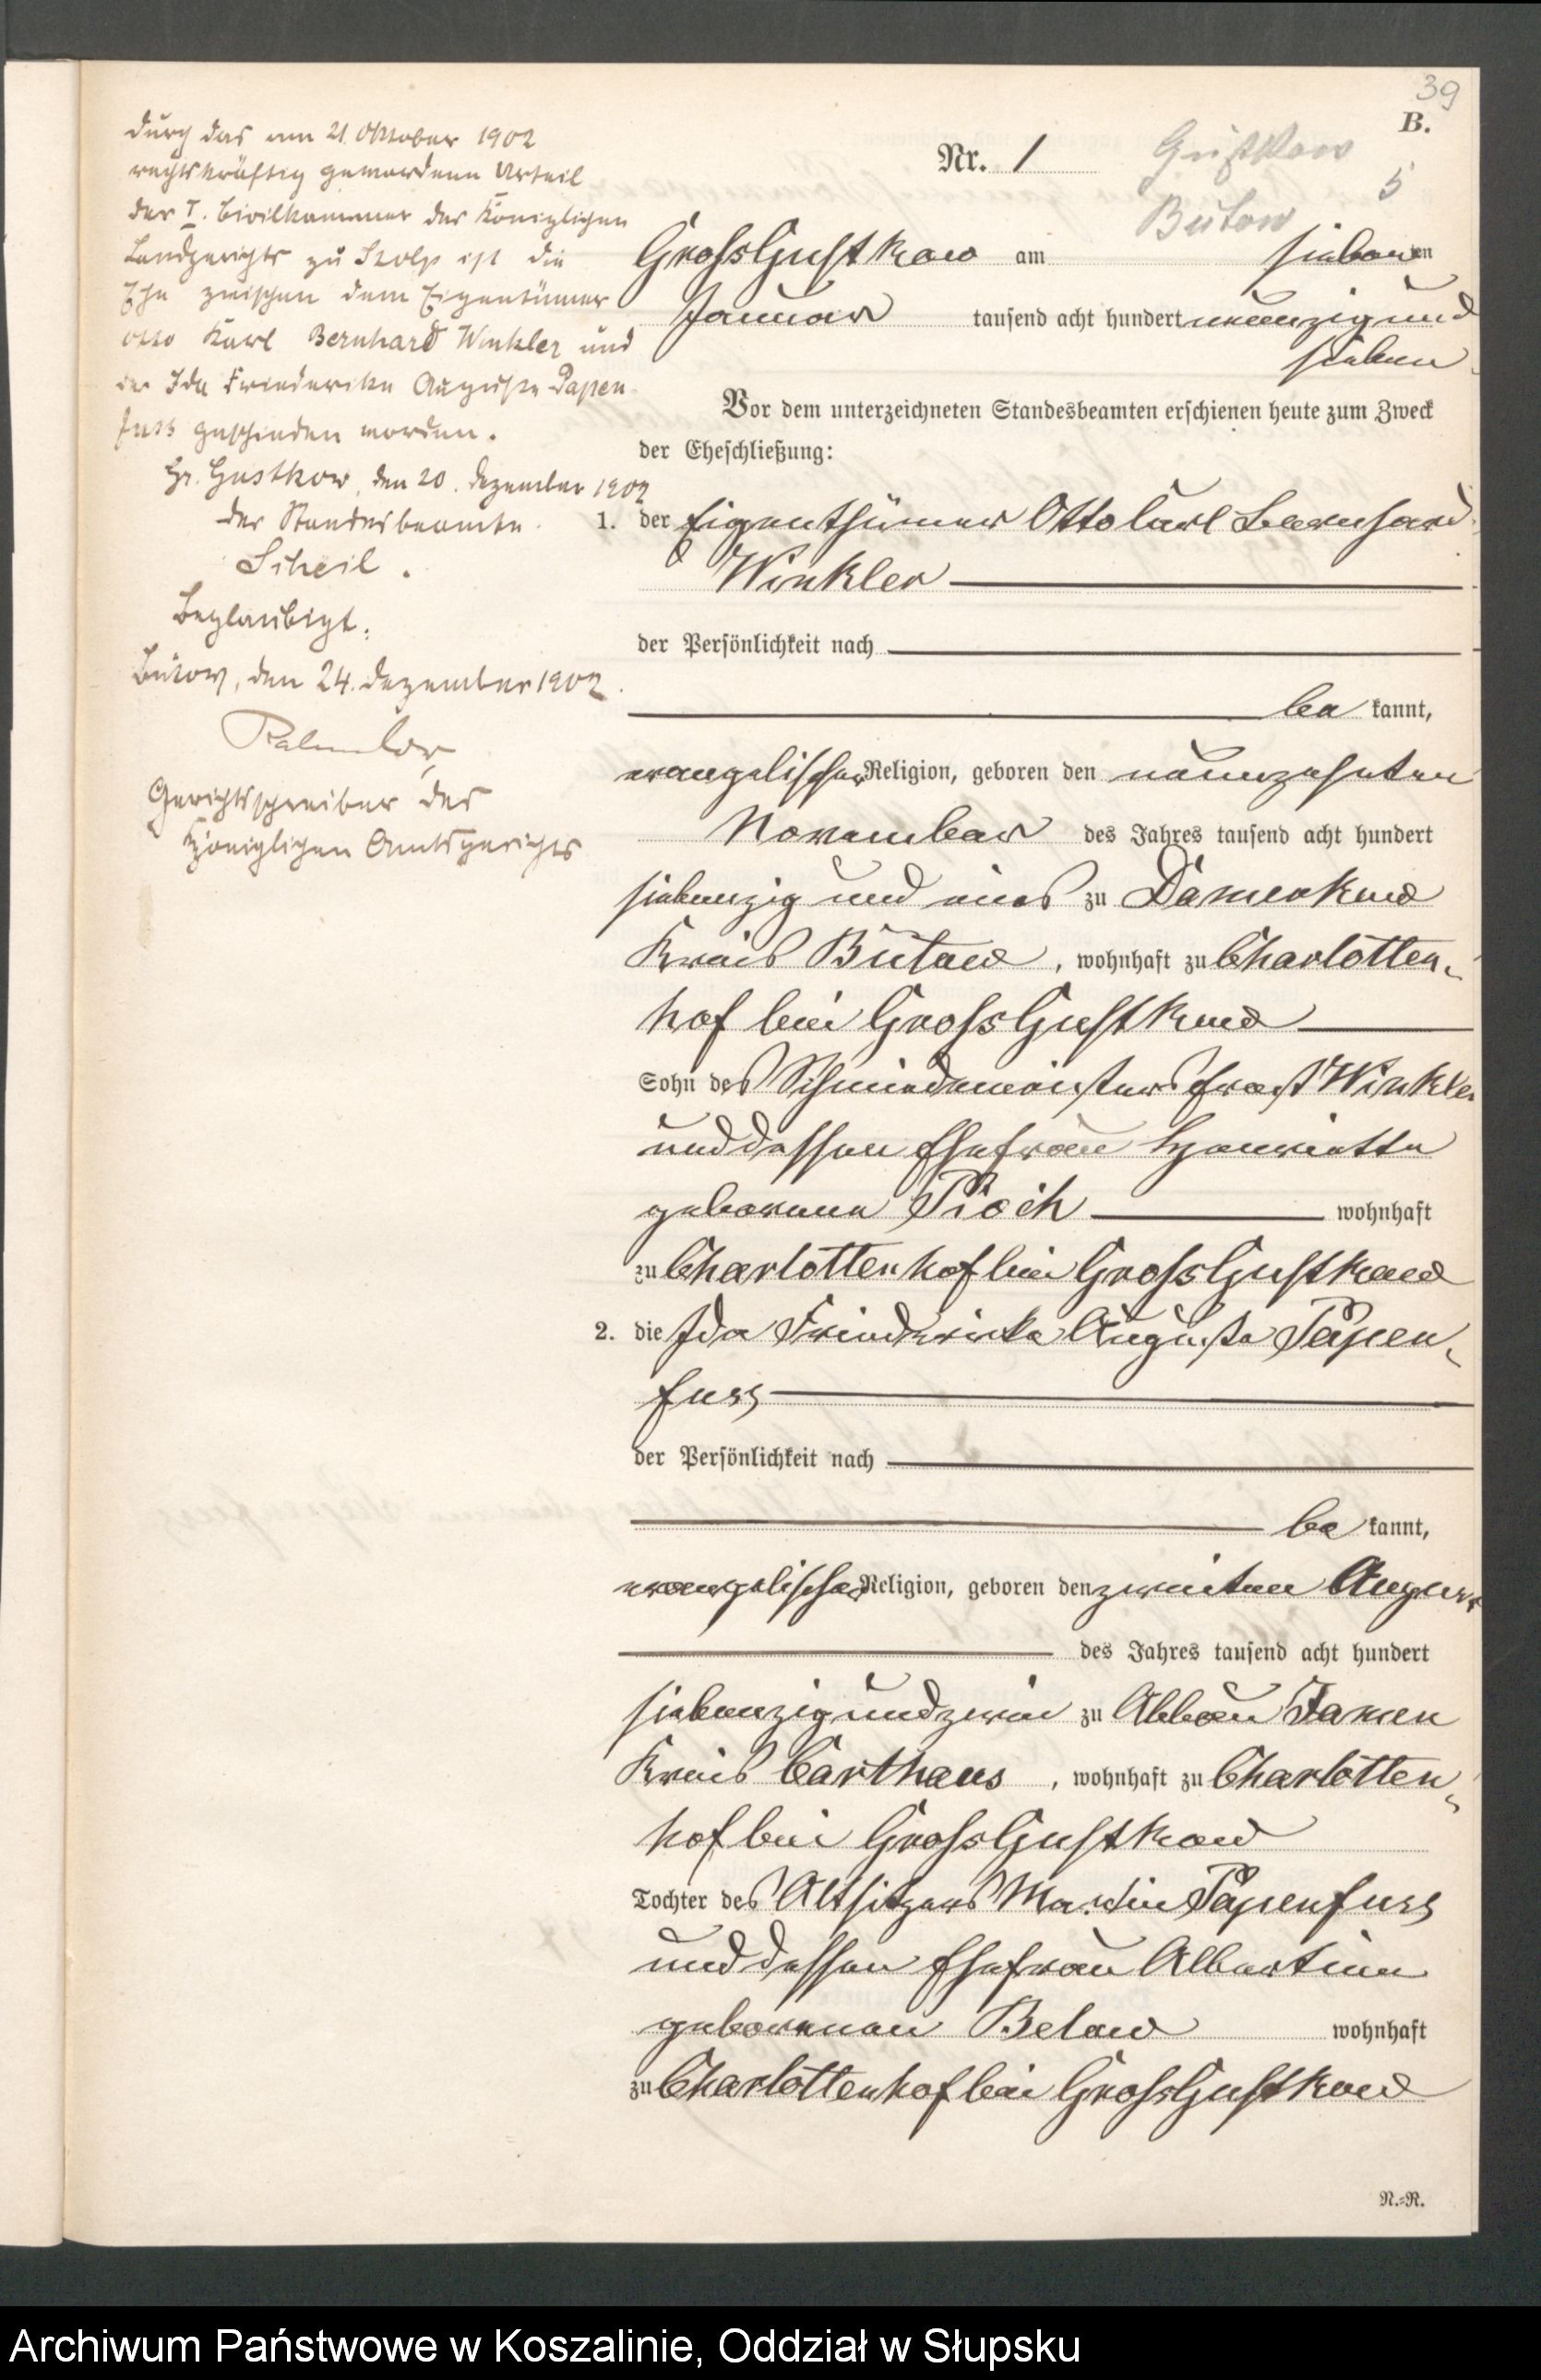 39
B.
Nr. 1
Gustkow
5
Bütow
Gross Gustkow am sieben en
Januar tausend acht hundert neunzig und
sieben
Vor dem unterzeichneten Standesbeamten erschienen heute zum Zweck
der Eheschließung:
1. der Eigenthümer Otto Carl Bernhard
Winkler
der Persönlichkeit nach
be kannt,
evangelischer Religion, geboren den neunzehnten
November des Jahres tausend acht hundert
siebenzig und eins zu Damerkow
Kreis Bütow, wohnhaft zu Charlotten-
hof bei Gross Gustkow
Sohn des Schmiedemeisters Ernst Winkler
und dessen Ehefrau Henriette
geborene Pioch wohnhaft
zu Charlottenhof bei Gross Gustkow
2. die Ida Friederieke Auguste Papen-
fuss
der Persönlichkeit nach
be kannt,
evangelischer Religion, geboren den zweiten August
des Jahres tausend acht hundert
siebenzig und zwei zu Abbau Jamen
Kreis Carthaus, wohnhaft zu Charlotten-
hof bei Gross Gustkow
Tochter des Altsitzers Martin Papenfuss
und dessen Ehefrau Albertine
geborenen Below wohnhaft
zu Charlottenhof bei Gross Gustkow
N.=R.
Durch das am 21. Oktober 1902
rechtskräftig gewordene Urteil
der I. Civilkammer des Königlichen
Landgerichts zu Stolp ist die
Ehe zwischen dem Eigentümer
Otto Karl Bernhard Winkler und
der Ida Friederike Auguste Papen-
fuss geschieden worden.
Gr. Gustkow, den 20. Dezember 1902
Der Standesbeamte.
Scheil.
Beglaubigt.
Bütow, den 24. Dezember 1902.
Gerichtsschreiber des
Königlichen Amtsgerichts
Archiwum Państwowe w Koszalinie, Oddział w Słupsku